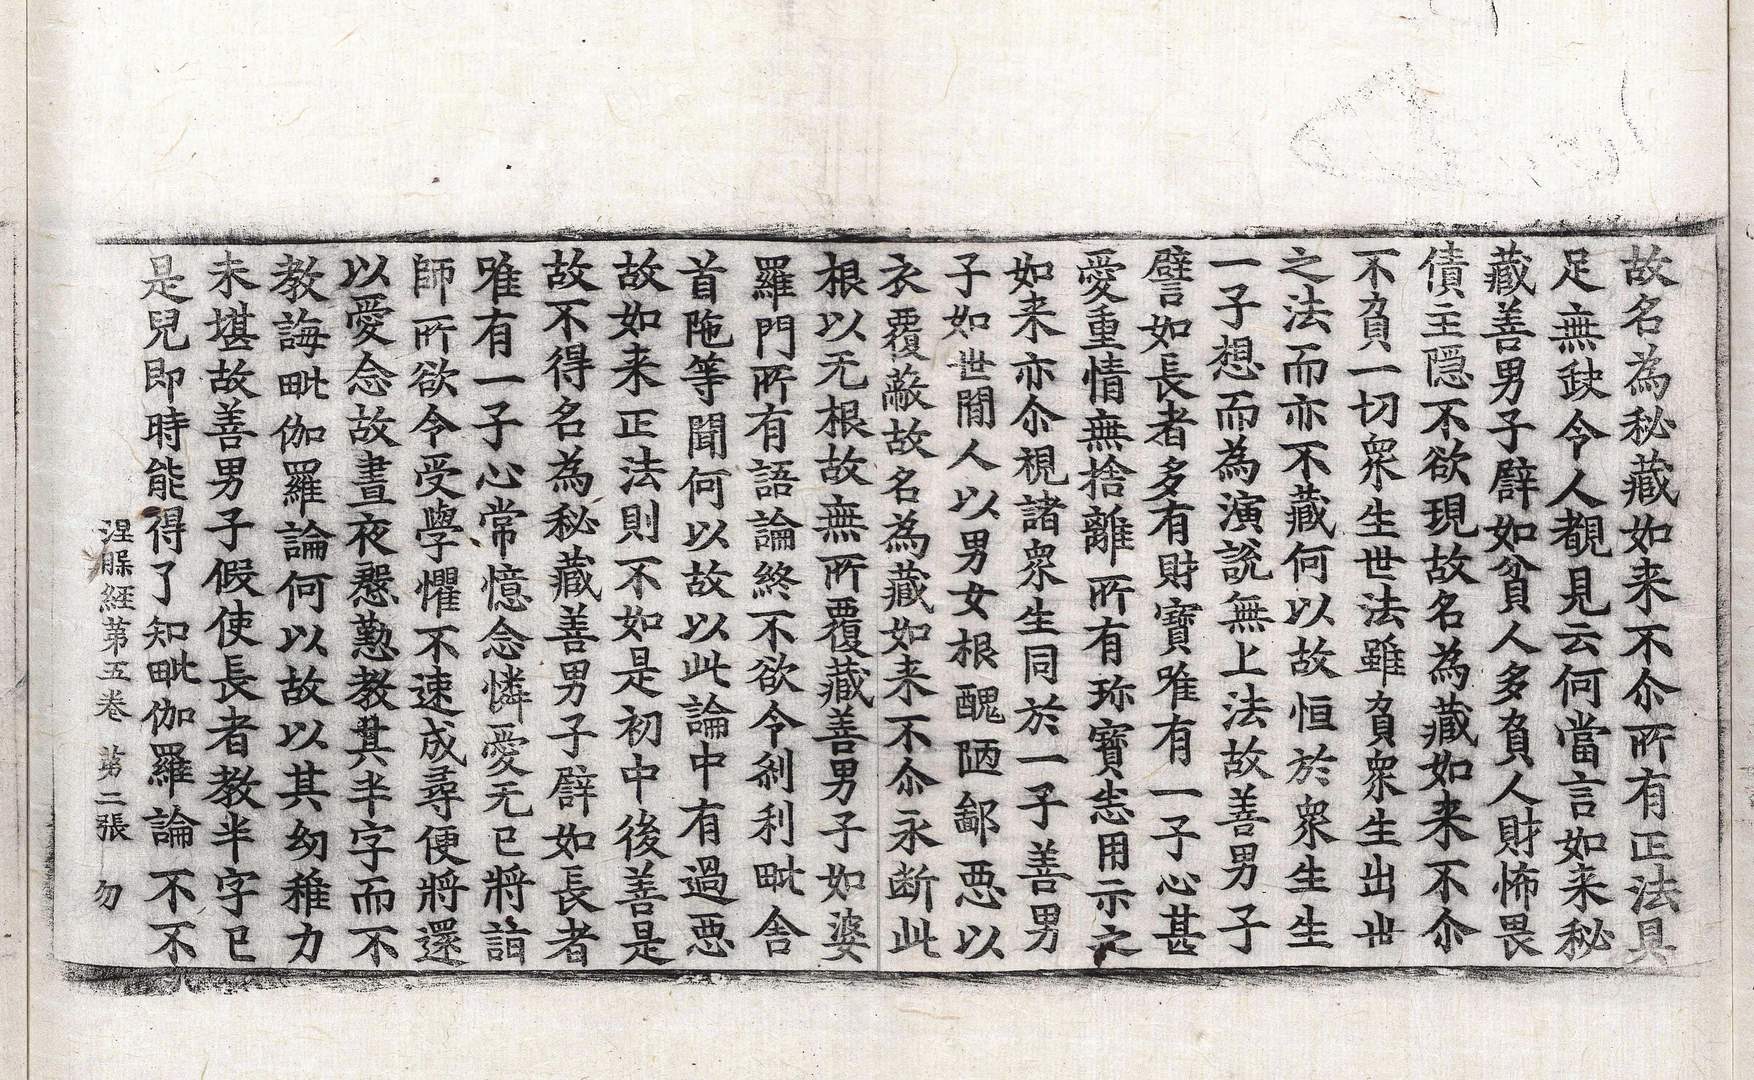 故名為秘藏如来不尒所有正法具
足無缺令人覩見云何當言如来秘
藏善男子譬如貧人多負人財怖畏
債主隠不欲現故名為藏如来不尒
不負一切衆生世法雖負衆生出世
之法而亦不藏何以故恒於衆生生
一子想而為演說無上法故善男子
譬如長者多有財寶唯有一子心甚
愛重情無捨離所有珎寶悉用示之
如来亦尒視諸衆生同於一子善男
子如世閒人以男女根醜陋鄙惡以
衣覆蔽故名為藏如来不尒永断此
根以无根故無所覆藏善男子如婆
羅門所有語論終不欲令刹利毗舍
首陁等聞何以故以此論中有過惡
故如来正法則不如是初中後善是
故不得名為秘藏善男子譬如長者
唯有一子心常憶念憐愛无已將詣
師所欲令受學懼不速成尋便將還
以愛念故晝夜慇懃教其半字而不
教誨毗伽羅論何以故以其幼稚力
未堪故善男子假使長者教半字已
是兒即時能得了知毗伽羅論不不
涅槃經第五卷 第二張 勿